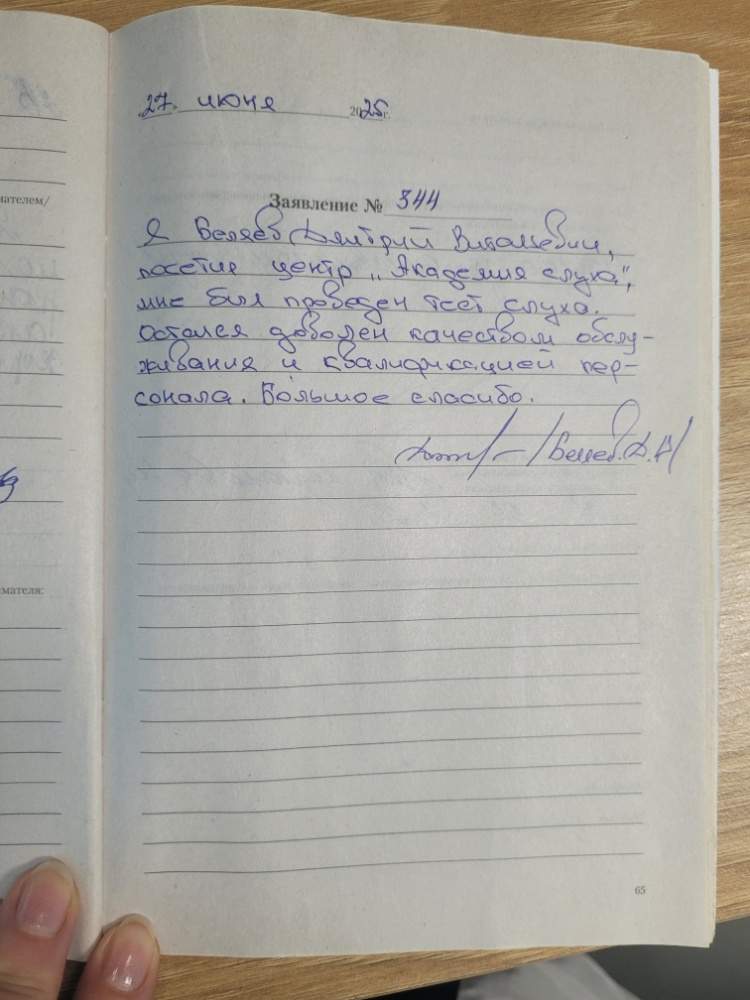 27. июня 2025г.
Заявление № 344
Я Беляев Дмитрий Витальевич,
посетил центр „Академия слуха",
мне был проведен тест слуха.
Остался доволен качеством обслу-
живания и квалификацией пер-
сонала. Большое спасибо.
/Беляев.Д.В/
ателем/
мателя:
65